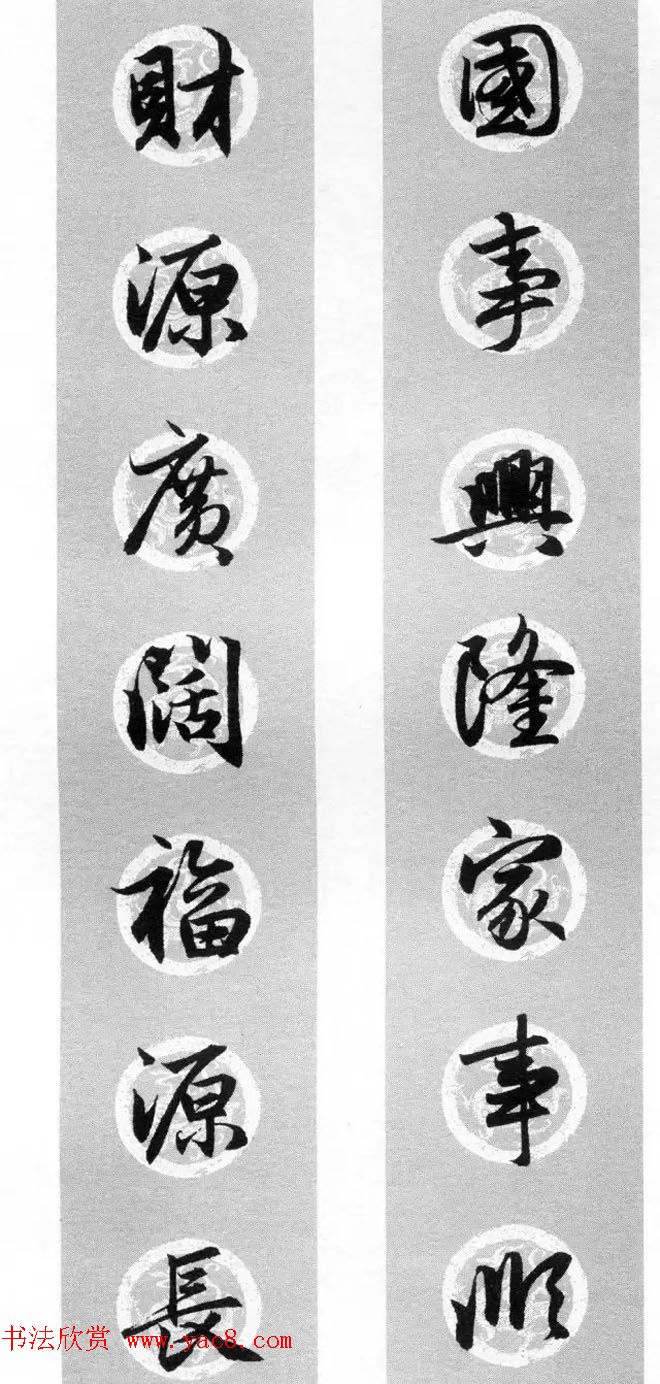 國事興隆家事順
財源廣闊福源長
书法欣赏 www.yac8.com